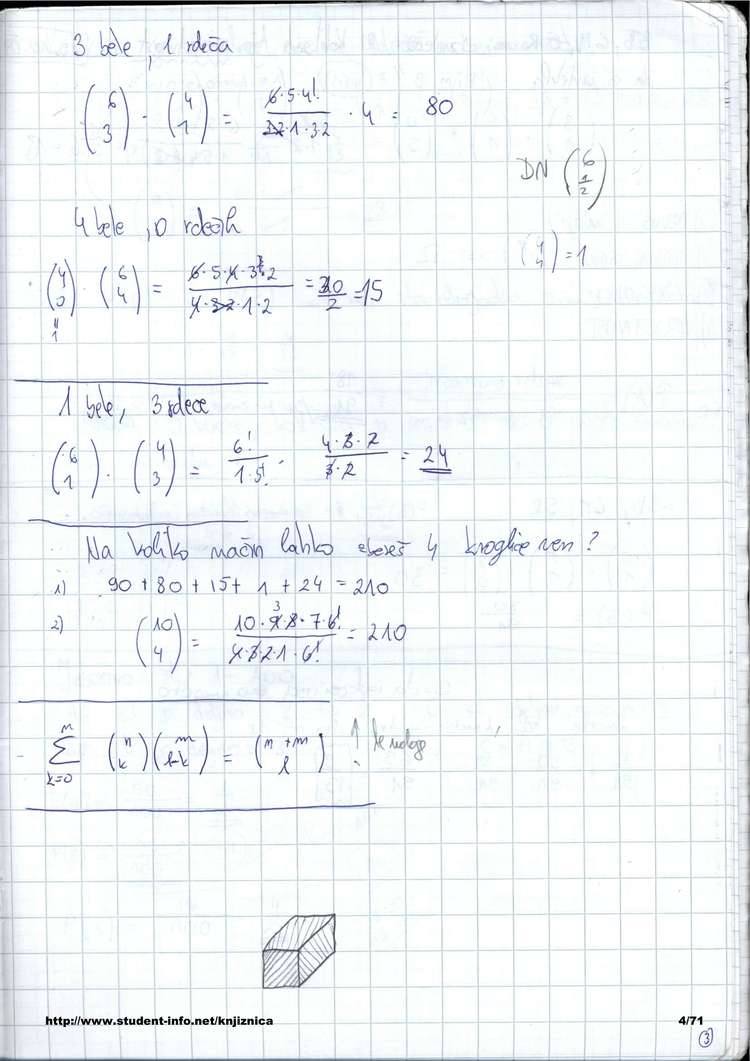 3 bele, 1 rdeča
(6 3) · (4 1) = 6·5·4! / 3·2·1·3·2 · 4 = 80
DN (6 1/2)
4 bele, 0 rdečih
(4 4) = 1
(4 0) · (6 4) = 6·5·4·3·2 / 4·3·2·1·2 = 30/2 = 15
" 1
1 bele, 3 rdece
(6 1) · (4 3) = 6! / 1·5! · 4·3·2 / 3·2 = 24
Na koliko način lahko zbereš 4 kroglice ven?
1) 90 + 80 + 15 + 1 + 24 = 210
2) (10 4) = 10·9·8·7·6! / 4·3·2·1·6! = 210
3
m ∑ k=0 (n k)(m l-k) = (n+m l) ↑ te naloge
http://www.student-info.net/knjiznica
4/71
3